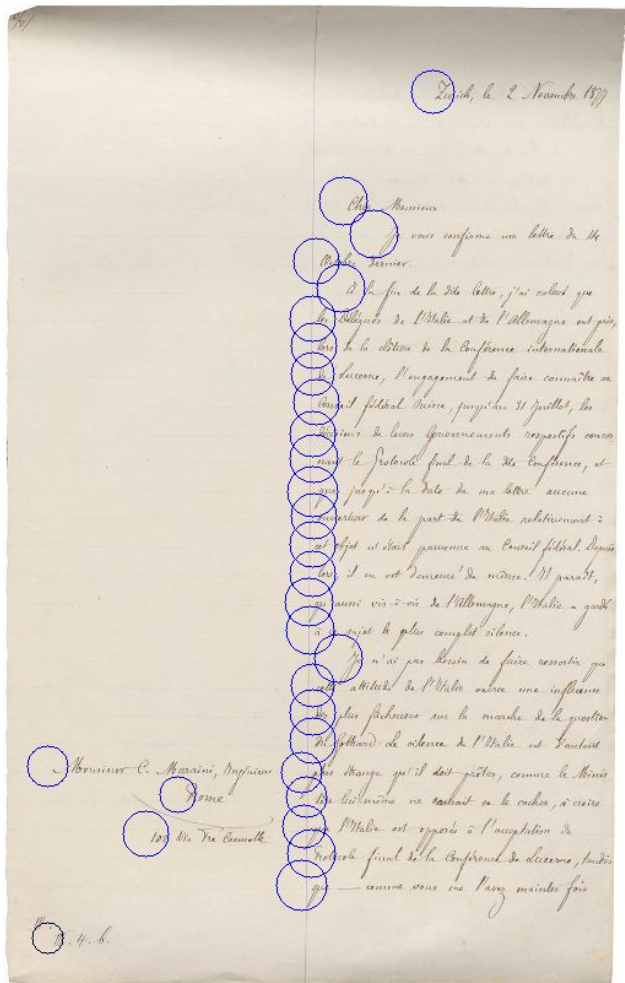 Zürich, le 2 Novembre 1877
Cher Monsieur
Je vous confirme ma lettre du 14
Octobre dernier.
A la fin de la dite lettre, j'ai relevé que
les Délégués de l'Italie et de l'Allemagne ont pris,
lors de la clôture de la Conférence internationale
de Lucerne, l'engagement de faire connaître au
Conseil fédéral Suisse, jusqu'au 31 Juillet, les
décisions de leurs Gouvernements respectifs concer
nant le Protocole final de la dite Conférence, et
que jusqu'à la date de ma lettre aucune
ouverture de la part de l'Italie relativement à
cet objet n'était parvenue au Conseil fédéral. Depuis
lors, il en est demeuré de même. Il paraît,
qu'aussi vis-à-vis de l'Allemagne, l'Italie a gardé
à ce sujet le plus complet silence.
Je n'ai pas besoin de faire ressortir que
cette attitude de l'Italie exerce une influence
des plus fâcheuses sur la marche de la question
du Gothard. Le silence de l'Italie est d'autant
plus étrange qu'il doit prêter, comme le Minis
tère lui-même ne saurait se le cacher, à croire
que l'Italie est opposée à l'acceptation du
Protocole final de la Conférence de Lucerne, tandis
que — comme vous me l'avez maintes fois
Monsieur C. Maraini, Ingénieur
Rome
Via
4. 6.